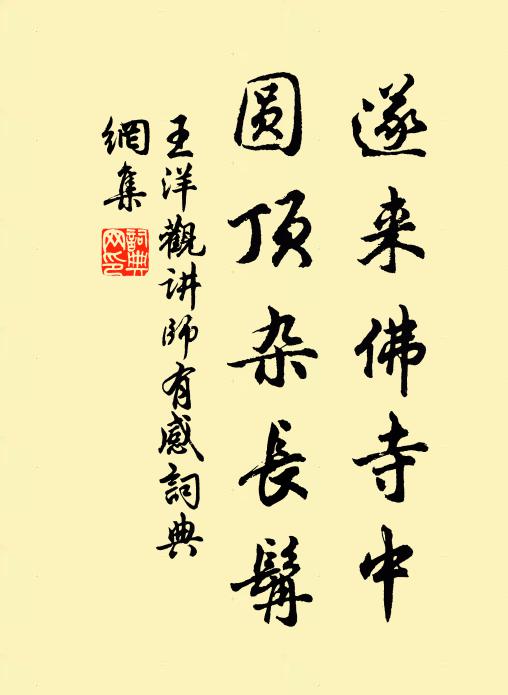 遂来佛寺中
圆顶杂長髯
王洋觀讲师有感詞典
網集
詞典网印